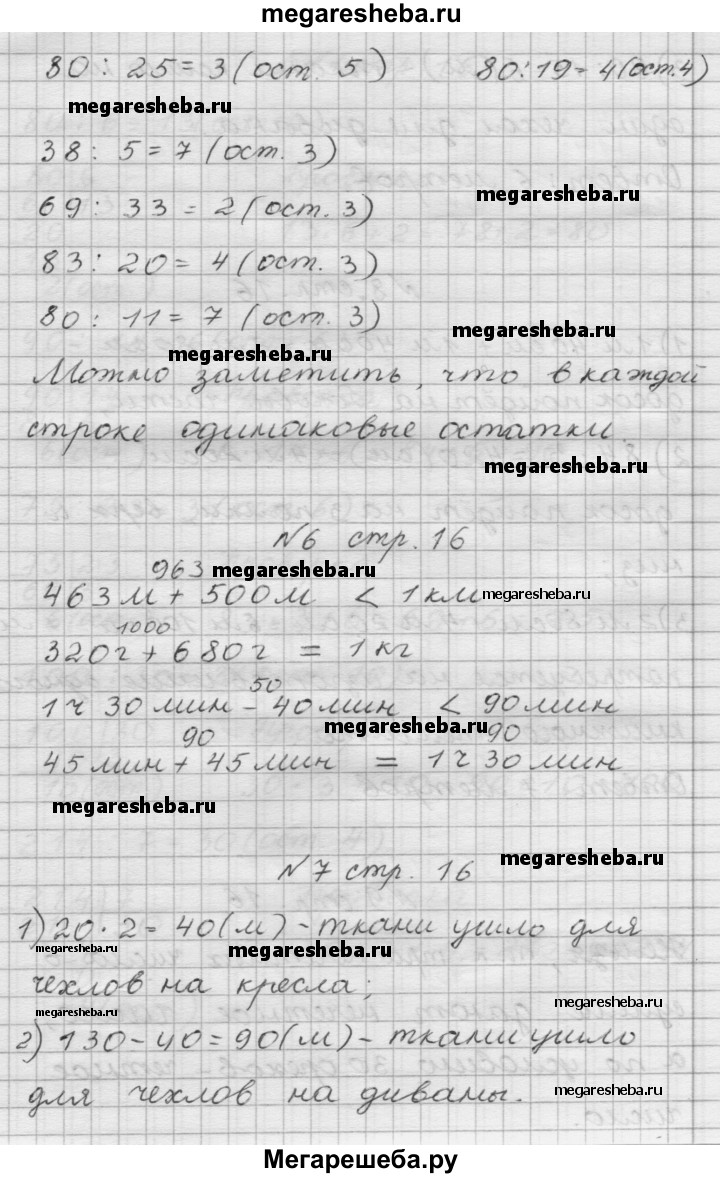 megaresheba.ru
80 : 25 = 3 (ост. 5) 80 : 19 = 4 (ост. 4)
megaresheba.ru
38 : 5 = 7 (ост. 3)
megaresheba.ru
69 : 33 = 2 (ост. 3)
83 : 20 = 4 (ост. 3)
80 : 11 = 7 (ост. 3)
megaresheba.ru
megaresheba.ru
Можно заметить, что в каждой
строке одинаковые остатки.
megaresheba.ru
№6 стр. 16
963
megaresheba.ru
463 м + 500 м < 1 км
megaresheba.ru
1000
320 г + 680 г = 1 кг
50
1 ч 30 мин - 40 мин < 90 мин
megaresheba.ru
90 90
45 мин + 45 мин = 1 ч 30 мин
megaresheba.ru
№7 стр. 16
megaresheba.ru
1) 20 · 2 = 40 (м) - ткани ушло для
megaresheba.ru
megaresheba.ru
чехлов на кресла;
megaresheba.ru
megaresheba.ru
2) 130 - 40 = 90 (м) - ткани ушло
megaresheba.ru
megaresheba.ru
для чехлов на диваны.
Мегарешеба.ру